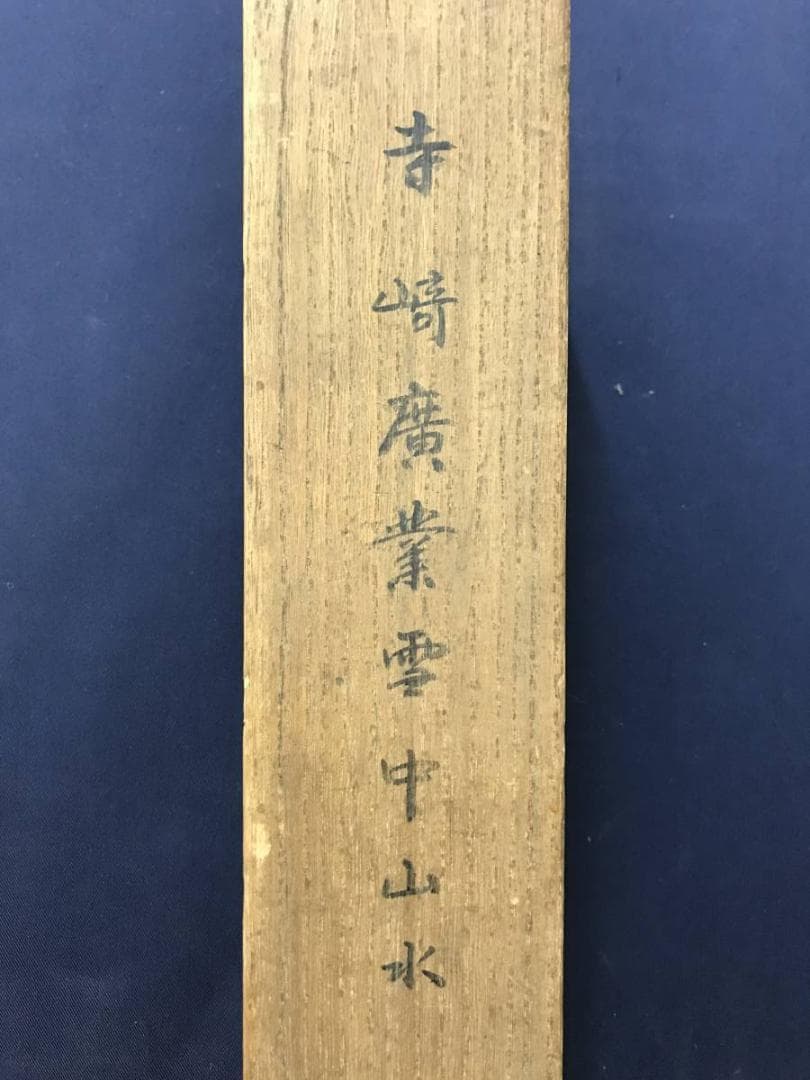 寺﨑廣業雪中山水